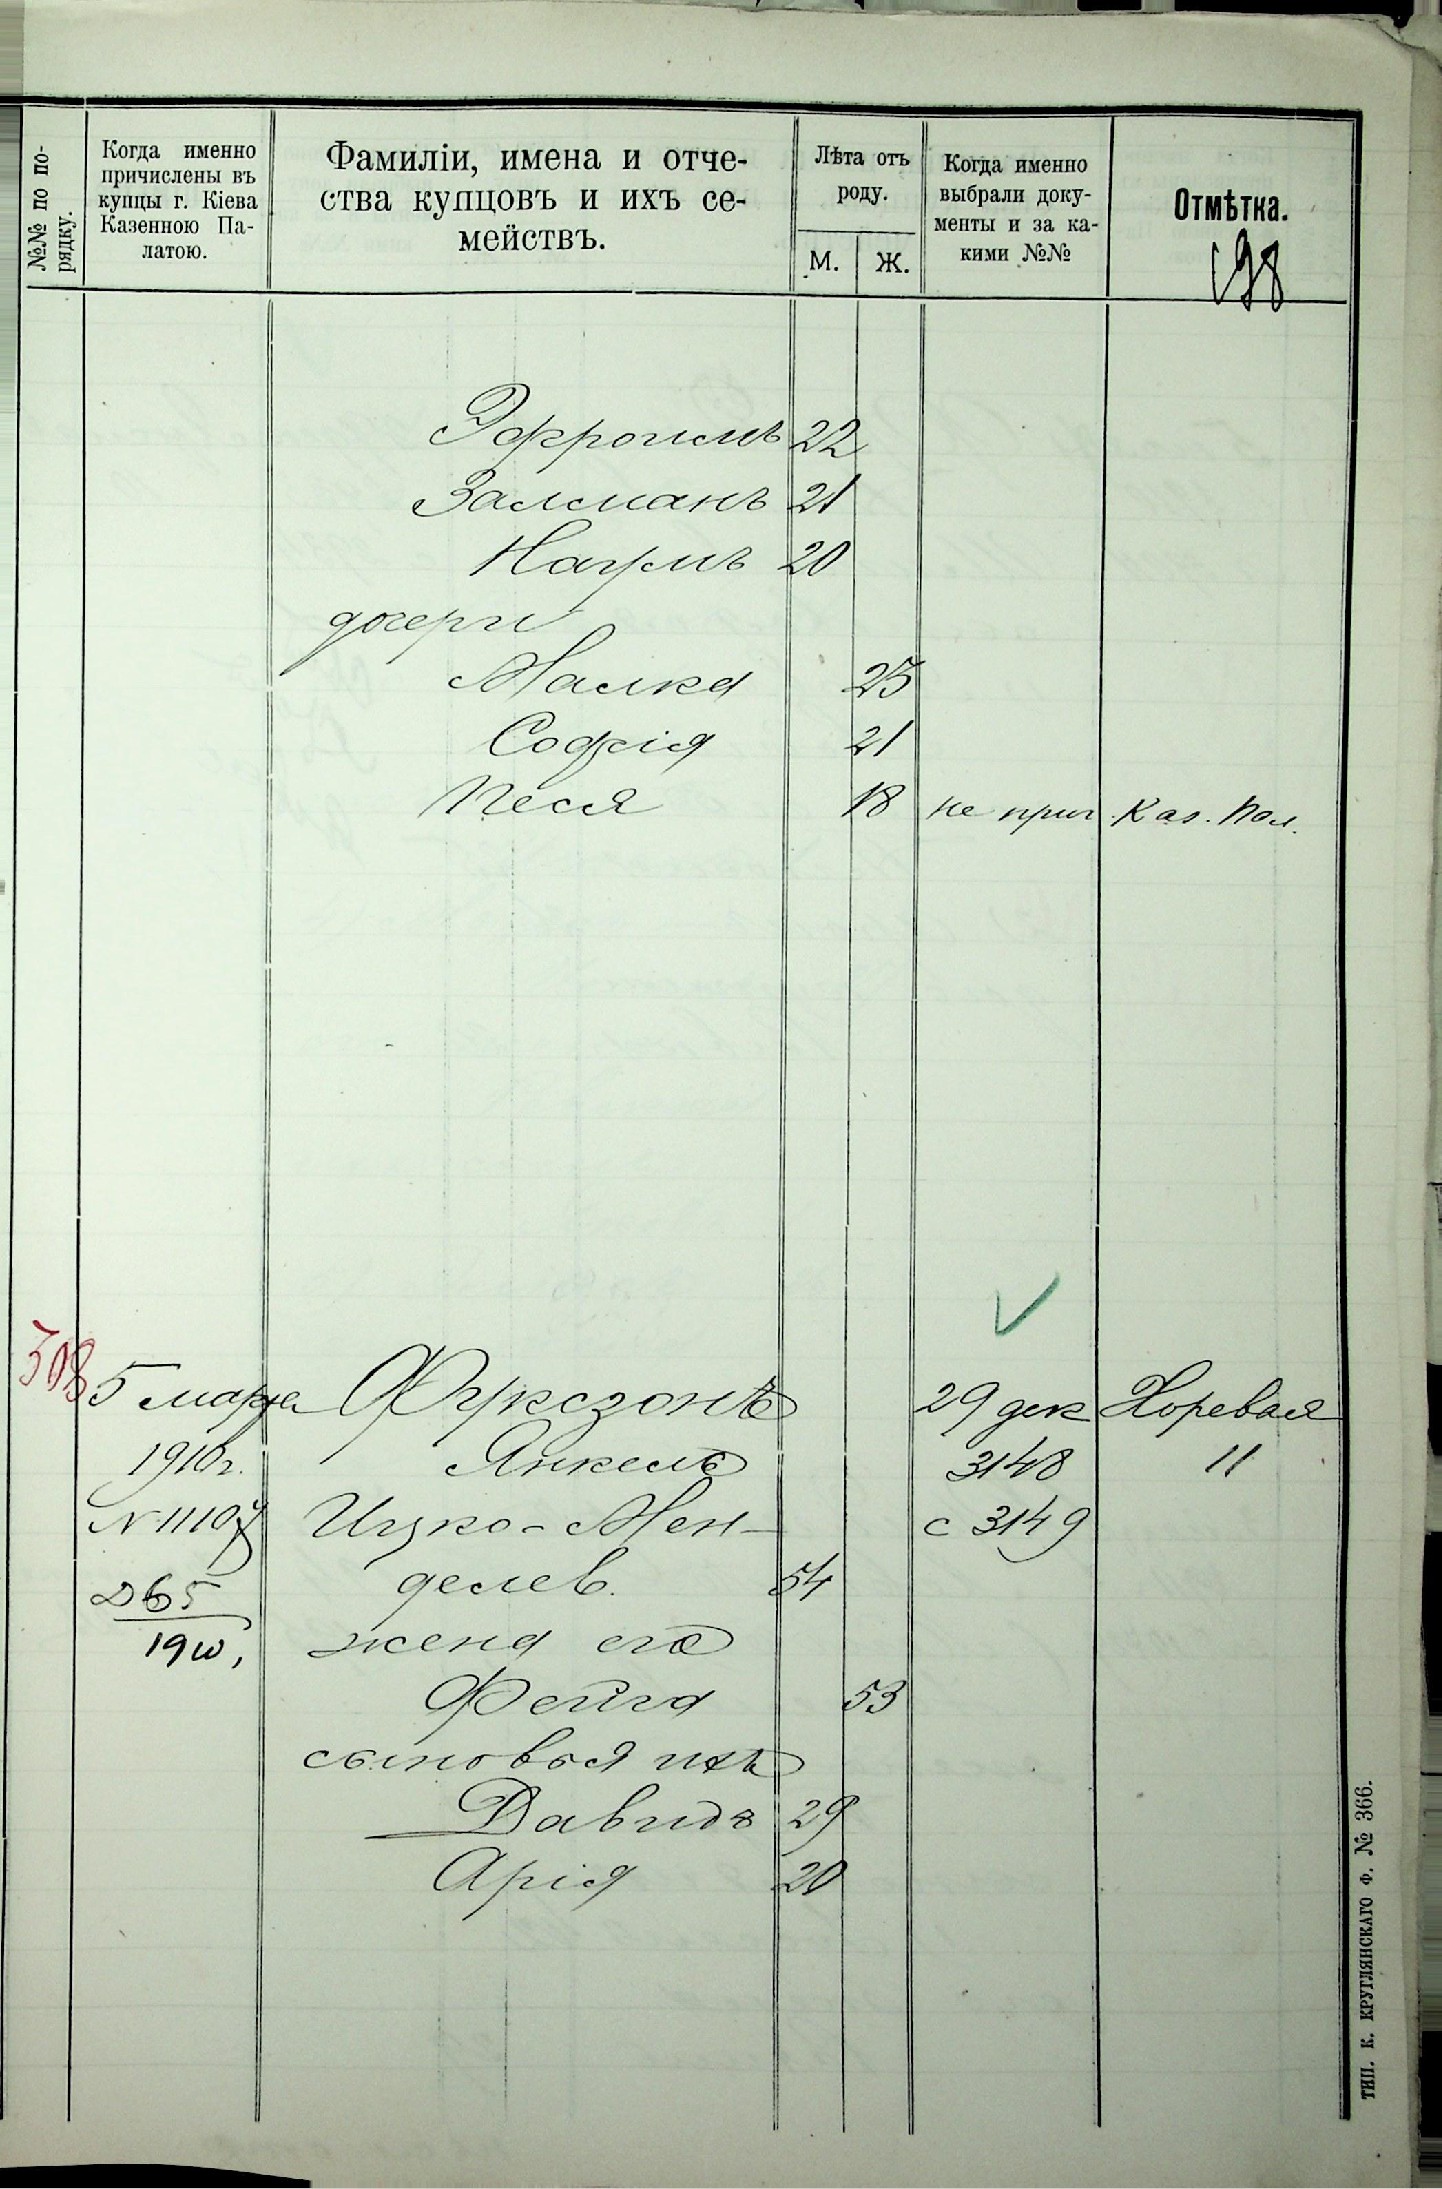 №№ по по-
рядку.
Когда именно
причислены въ
купцы г. Кіева
Казенною Па-
латою.
Фамиліи, имена и отче-
ства купцовъ и ихъ се-
мействъ.
Лѣта отъ
роду.
М. Ж.
Когда именно
выбрали доку-
менты и за ка-
кими №№
Отмѣтка.
198
Эфроимъ 22
Залманъ 21
Наумъ 20
дочери
Малка 23
Софія 21
Песя 18 не прич. Каз. Пал.
308
5 марта Фуксзонъ 29 дек Хоревая
1910г. Янкель 3148 11
Ицко-Мен- с 3149
делев. 54
1910,
жена его
Фейга 53
сыновья ихъ
Давидъ 29
Арія 20
ТИП. К. КРУГЛЯНСКАГО Ф. № 366.